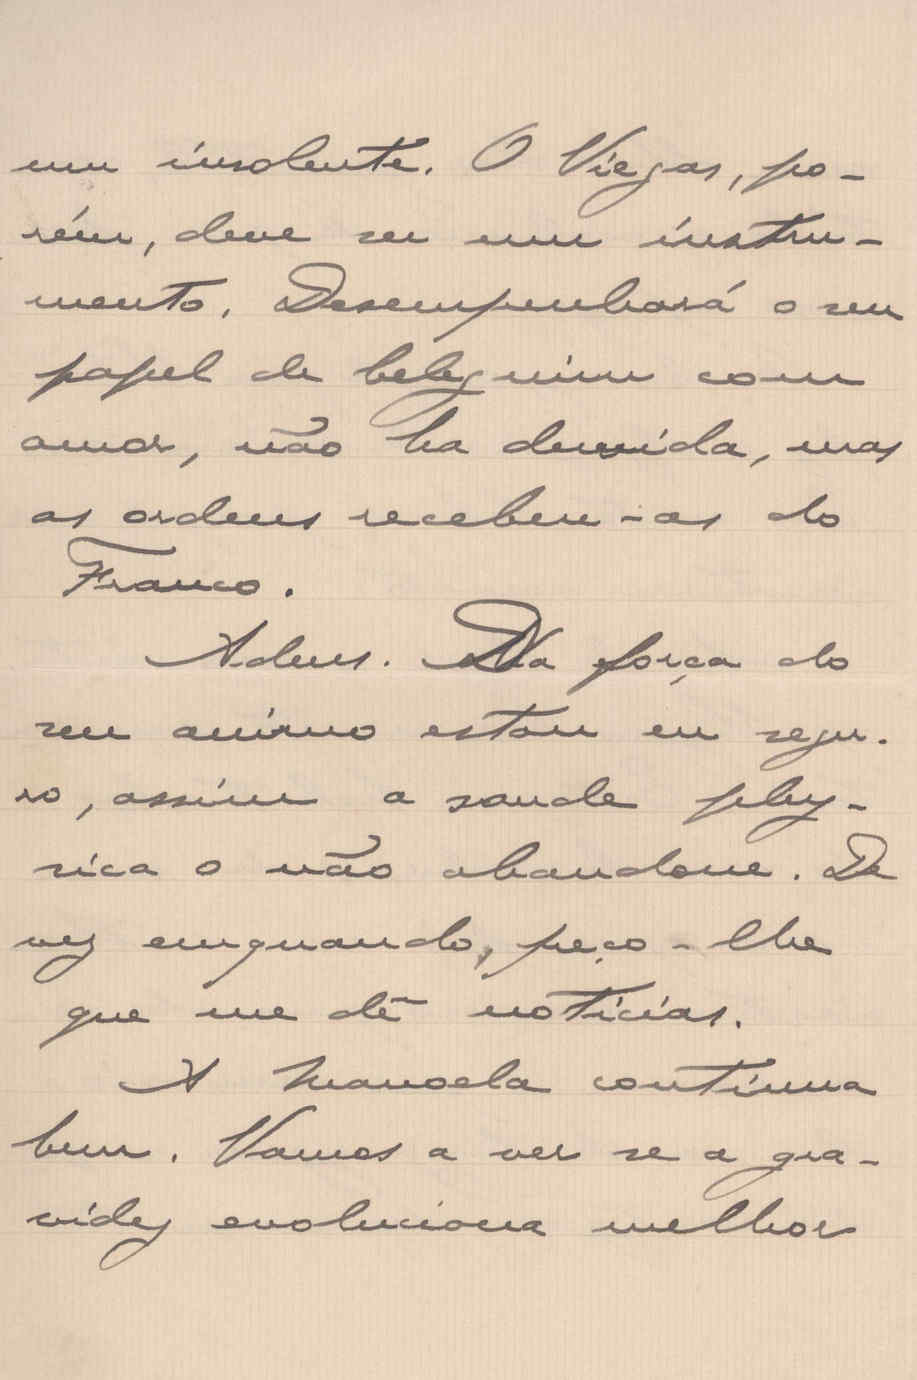 um insolente. O Viegas, po-
rém, deve ser um instru-
mento. Desempenhará o seu
papel de beleguim com
amor, não ha duvida, mas
as ordens recebem-as do
Franco.
Adeus. Da força do
seu animo estou eu segu-
ro, assim a saude phy-
sica o não abandone. De
vez emquando, peço-lhe
que me dê noticias.
A Manoela continua
bem. Vamos a ver se a gra-
videz evoluciona melhor